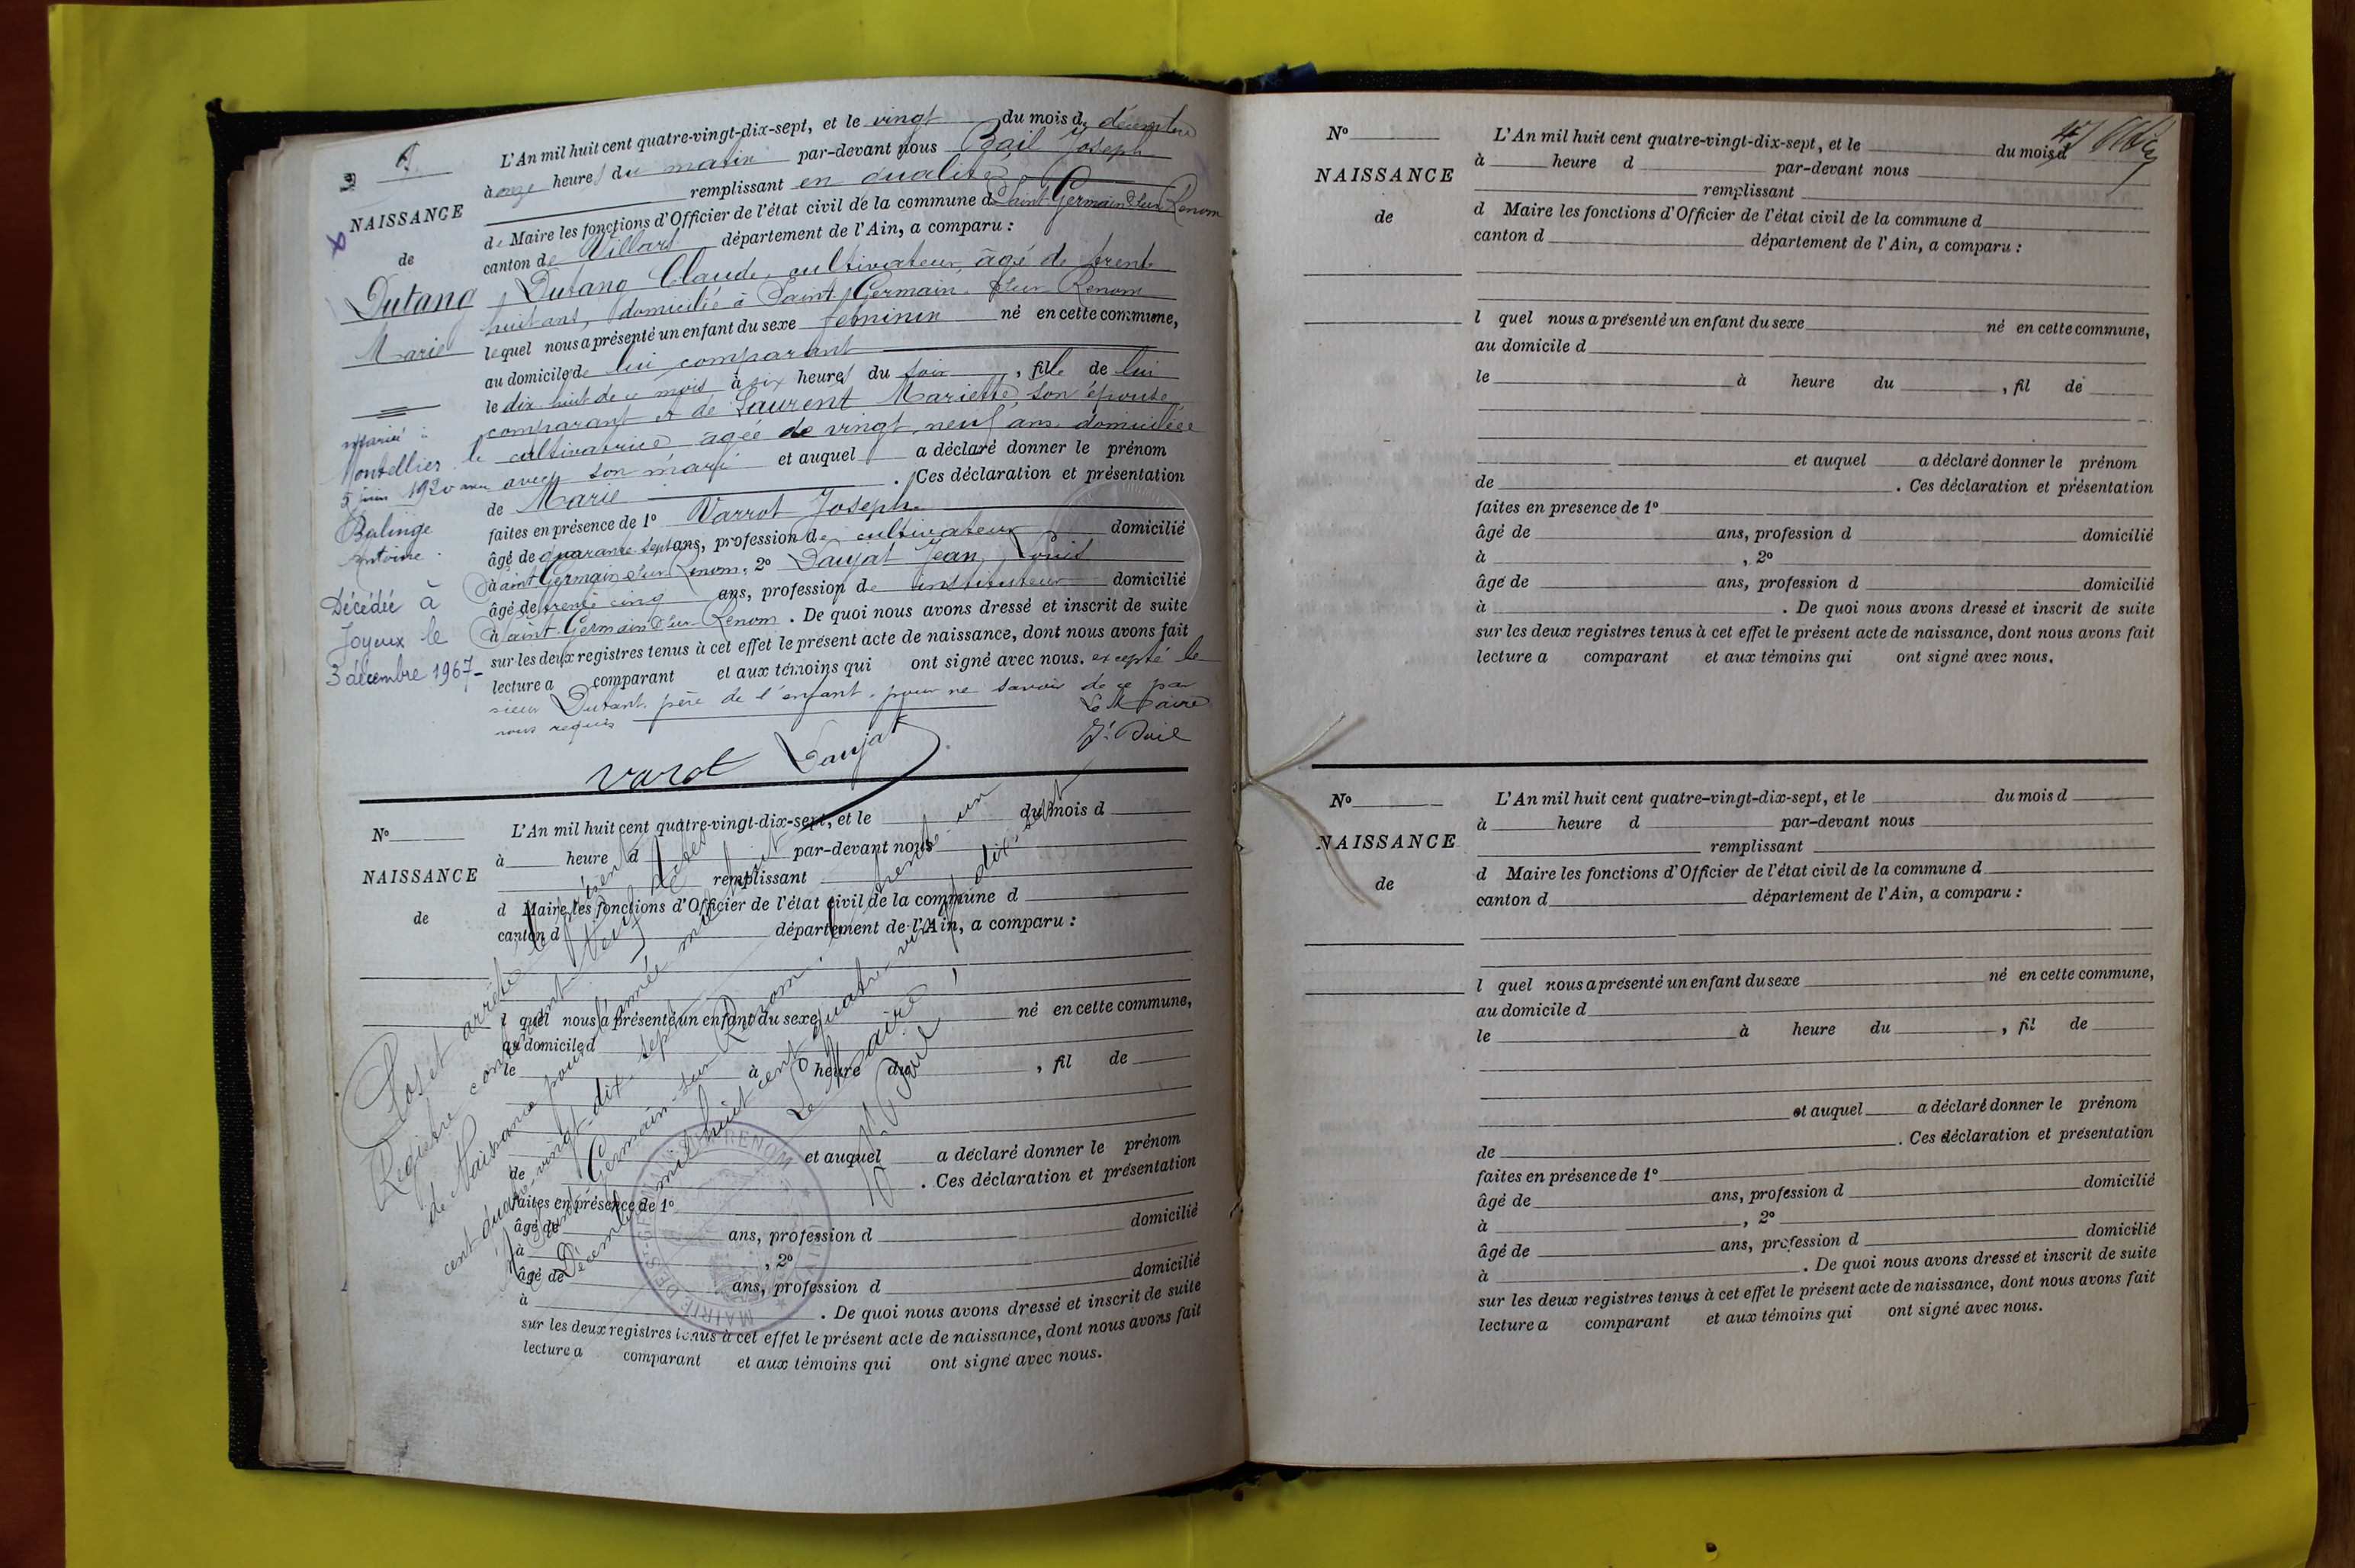 L'An mil huit cent quatre-vingt-dix-sept, et le vingt du mois de décembre
à onze heures du matin par-devant nous Bail Joseph
remplissant en qualité
de Maire les fonctions d'Officier de l'état civil de la commune de Saint Germain sur Renom
canton de Villars département de l'Ain, a comparu :
Dutang Claude, cultivateur, âgé de trente
huit ans, domicilié à Saint Germain sur Renom
lequel nous a présenté un enfant du sexe féminin né en cette commune,
au domicile de lui comparant
le dix huit de ce mois à six heures du soir, fille de lui
comparant et de Laurent Mariette, son épouse,
cultivatrice âgée de vingt neuf ans domiciliée
avec son mari et auquel a déclaré donner le prénom
de Marie. Ces déclaration et présentation
faites en présence de 1º Varrot Joseph
âgé de quarante sept ans, profession de cultivateur domicilié
à Saint Germain sur Renom, 2º Daujat Jean Louis
âgé de trente cinq ans, profession de instituteur domicilié
à Saint Germain sur Renom. De quoi nous avons dressé et inscrit de suite
sur les deux registres tenus à cet effet le présent acte de naissance, dont nous avons fait
lecture a comparant et aux témoins qui ont signé avec nous. excepté le
sieur Dutant père de l'enfant, pour ne savoir de ce par
nous requis
Le Maire
J. Bail
Varot Daujat
NAISSANCE
de
Dutang
Marie
mariée à
Montellier le
5 juin 1920 avec
Balinge
Antoine.
Décédée à
Joyeux le
3 décembre 1967-
Nº
NAISSANCE
de
L'An mil huit cent quatre-vingt-dix-sept, et le du mois d
à heure d par-devant nous
remplissant
d Maire les fonctions d'Officier de l'état civil de la commune d
canton d département de l'Ain, a comparu :
l quel nous a présenté un enfant du sexe né en cette commune,
au domicile d
le à heure du , fil de
et auquel a déclaré donner le prénom
de . Ces déclaration et présentation
faites en présence de 1º
âgé de ans, profession d domicilié
à , 2º
âgé de ans, profession d domicilié
à . De quoi nous avons dressé et inscrit de suite
sur les deux registres tenus à cet effet le présent acte de naissance, dont nous avons fait
lecture a comparant et aux témoins qui ont signé avec nous.
Clos et arrêté le présent
Registre contenant neuf actes
de Naissance pour l'année mil huit
cent quatre-vingt-dix-sept
A Saint Germain-sur-Renom, le trente-un
Décembre mil huit cent quatre vingt dix-sept
Le Maire,
J. Bail
Nº
NAISSANCE
de
L'An mil huit cent quatre-vingt-dix-sept, et le du mois d
à heure d par-devant nous
remplissant
d Maire les fonctions d'Officier de l'état civil de la commune d
canton d département de l'Ain, a comparu :
l quel nous a présenté un enfant du sexe né en cette commune,
au domicile d
le à heure du , fil de
et auquel a déclaré donner le prénom
de . Ces déclaration et présentation
faites en presence de 1º
âgé de ans, profession d domicilié
à , 2º
âgé de ans, profession d domicilié
à . De quoi nous avons dressé et inscrit de suite
sur les deux registres tenus à cet effet le présent acte de naissance, dont nous avons fait
lecture a comparant et aux témoins qui ont signé avec nous.
Nº
NAISSANCE
de
L'An mil huit cent quatre-vingt-dix-sept, et le du mois d
à heure d par-devant nous
remplissant
d Maire les fonctions d'Officier de l'état civil de la commune d
canton d département de l'Ain, a comparu :
l quel nous a présenté un enfant du sexe né en cette commune,
au domicile d
le à heure du , fil de
et auquel a déclaré donner le prénom
de . Ces déclaration et présentation
faites en présence de 1º
âgé de ans, profession d domicilié
à , 2º
âgé de ans, profession d domicilié
à . De quoi nous avons dressé et inscrit de suite
sur les deux registres tenus à cet effet le présent acte de naissance, dont nous avons fait
lecture a comparant et aux témoins qui ont signé avec nous.